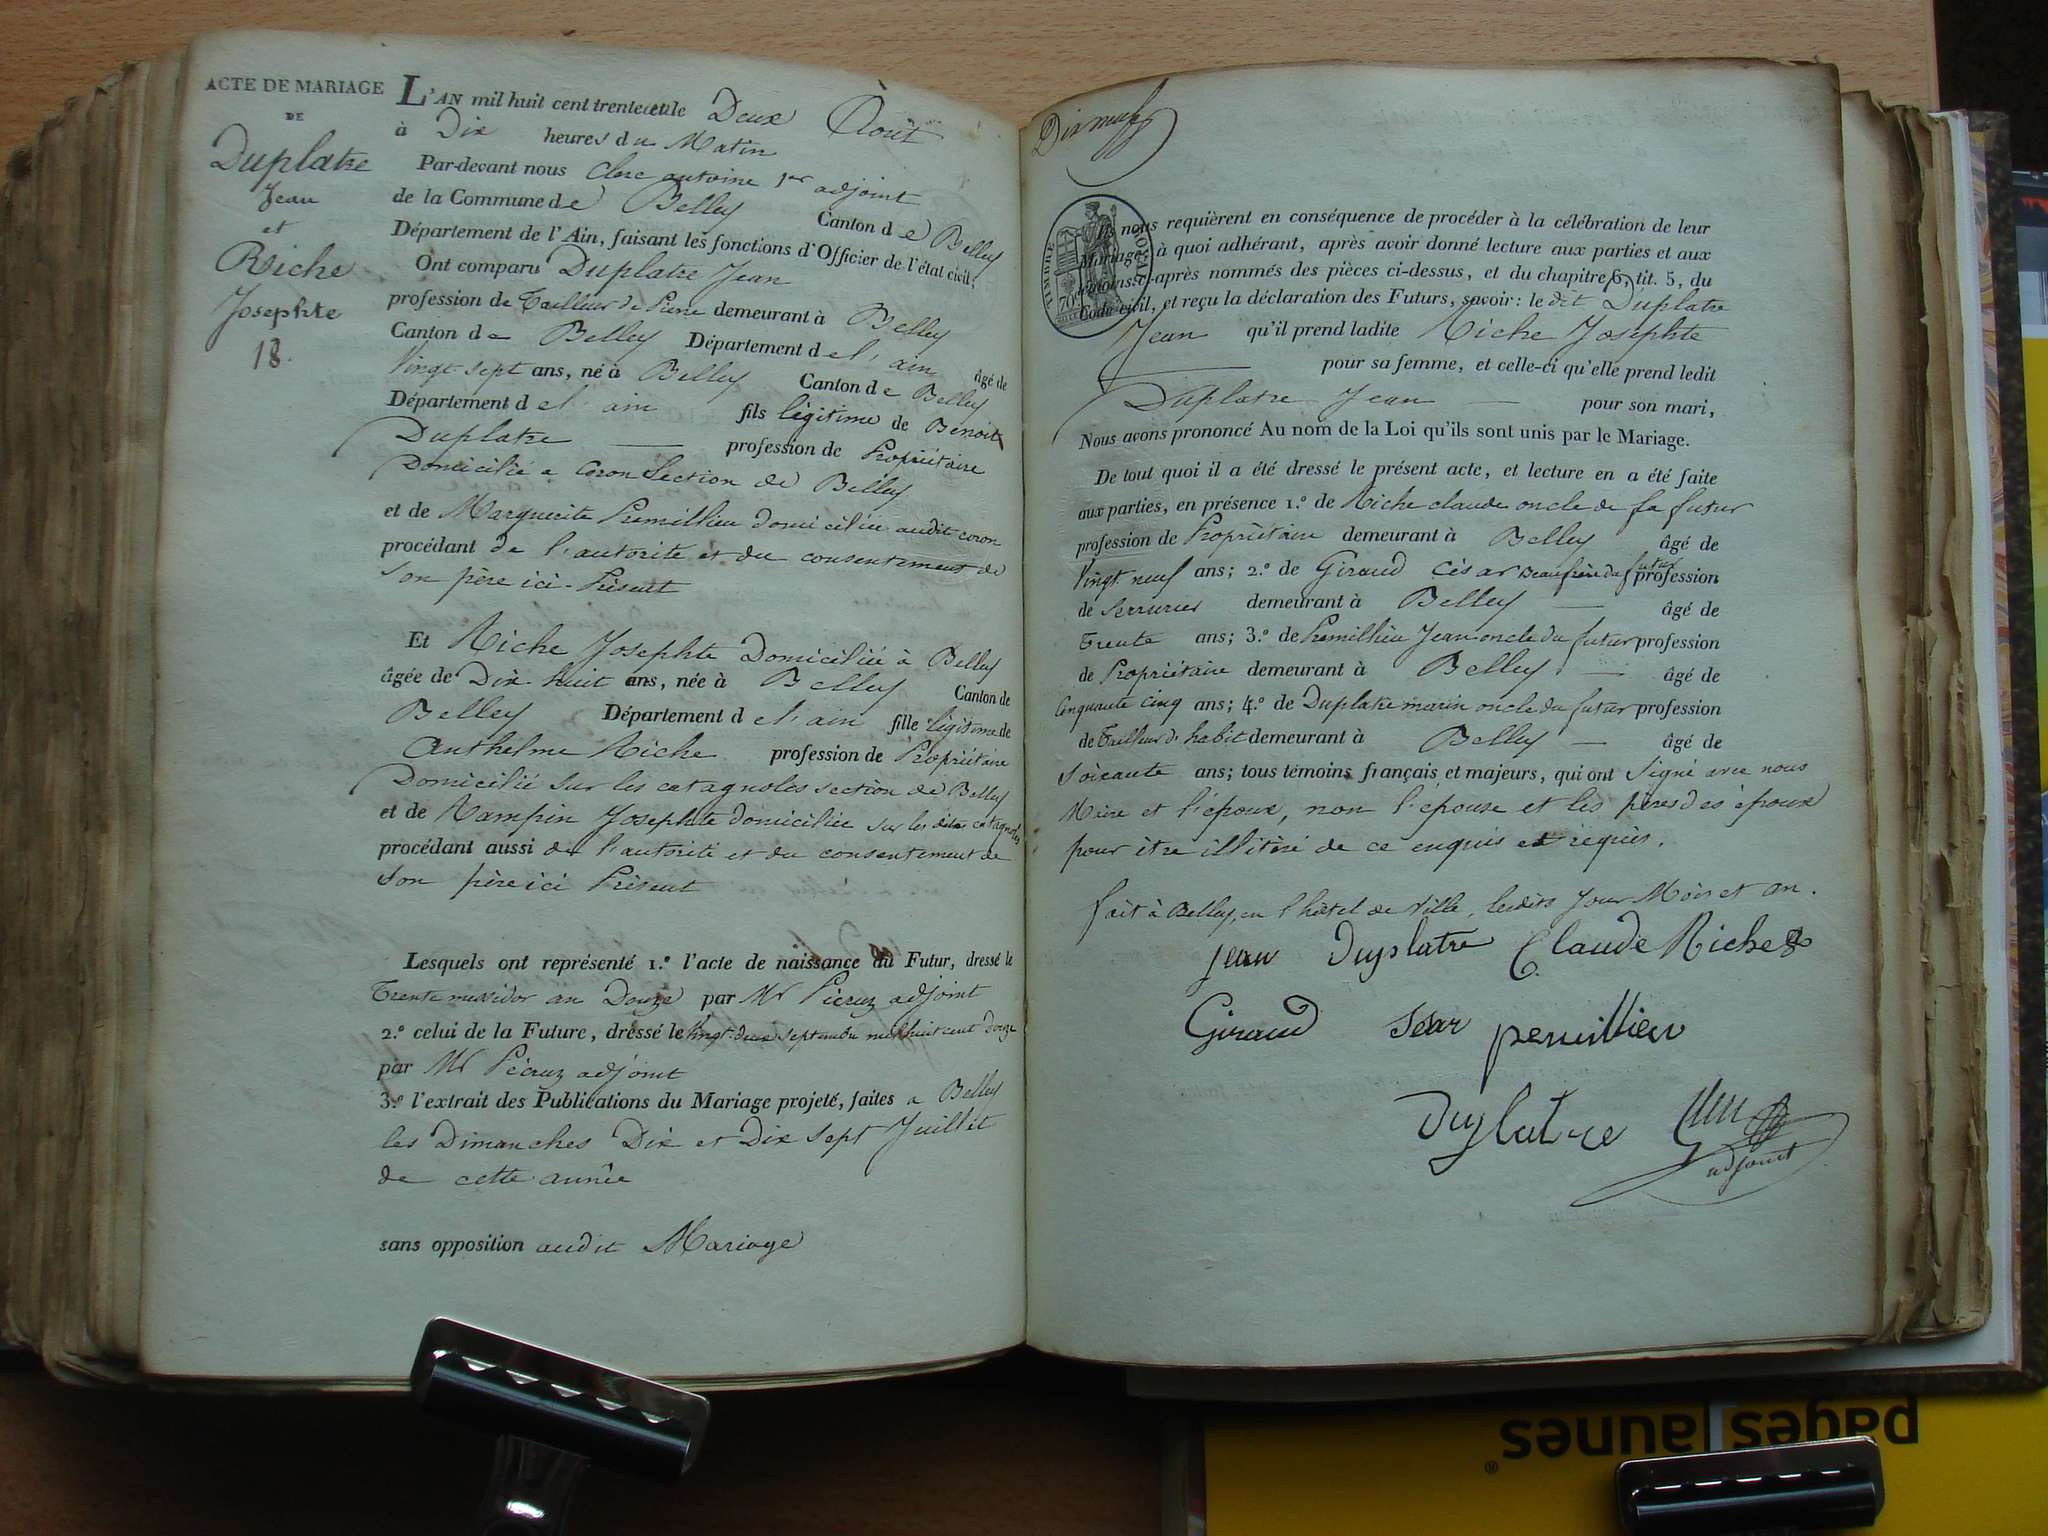 ACTE DE MARIAGE
DE
Duplatre
Jean
et
Riche
Josephte
18.
L'AN mil huit cent trente et le Deux Août
à Dix heures du Matin
Par-devant nous Clerc antoine 1er adjoint
de la Commune de Belley Canton de Belley
Département de l'Ain, faisant les fonctions d'Officier de l'état civil;
Ont comparu Duplatre Jean
profession de Tailleur de Pierre demeurant à Belley
Canton de Belley Département de l'ain âgé de
Vingt-sept ans, né à Belley Canton de Belley
Département de l'ain fils légitime de Benoit
Duplatre profession de Propriétaire
Domicilié a Coron Section de Belley
et de Marguerite Premillieu domiciliée audit coron
procédant de l'autorité et du consentement de
son père ici Présent
Et Riche Josephte Domiciliée à Belley
âgée de Dix-huit ans, née à Belley Canton de
Belley Département de l'ain fille légitime de
Anthelme Riche profession de Propriétaire
Domicilié sur les catagnoles section de Belley
et de Rampin Josephte domiciliée sur les dites catagnoles
procédant aussi de l'autorité et du consentement de
son père ici Présent
Lesquels ont représenté 1.º l'acte de naissance du Futur, dressé le
Trente messidor an Douze par Mr Pécruz adjoint
2.º celui de la Future, dressé le Vingt-deux septembre mil huit cent douze
par Mr Pécruz adjoint
3.º l'extrait des Publications du Mariage projeté, faites a Belley
les Dimanches Dix et Dix sept Juillet
de cette année
sans opposition audit Mariage
Dix neuf
TIMBRE ROYAL
70
Ils nous requièrent en conséquence de procéder à la célébration de leur
Mariage; à quoi adhérant, après avoir donné lecture aux parties et aux
témoins ci-après nommés des pièces ci-dessus, et du chapitre 6, tit. 5, du
Code civil, et reçu la déclaration des Futurs, savoir: le dit Duplatre
Jean qu'il prend ladite Riche Josephte
pour sa femme, et celle-ci qu'elle prend ledit
Duplatre Jean pour son mari,
Nous avons prononcé Au nom de la Loi qu'ils sont unis par le Mariage.
De tout quoi il a été dressé le présent acte, et lecture en a été faite
aux parties, en présence 1.º de Riche claude oncle de la futur
profession de Propriétaire demeurant à Belley âgé de
Vingt neuf ans; 2.º de Giraud César Beaufrère du futur profession
de Serrurier demeurant à Belley âgé de
Trente ans; 3.º de Premillieu Jean oncle du futur profession
de Propriétaire demeurant à Belley âgé de
Cinquante cinq ans; 4.º de Duplatre marin oncle du futur profession
de Tailleur d'habit demeurant à Belley âgé de
Soixante ans; tous témoins français et majeurs, qui ont Signé avec nous
Maire et l'époux, non l'épouse et les pères des époux
pour être illitéré de ce enquis et requis.
fait à Belley, en l'hôtel de Ville, lesdits Jour Mois et an.
jean Duplatre Claude Riche
Giraud Sesar permillieu
Duplatre
adjoint
pages jaunes